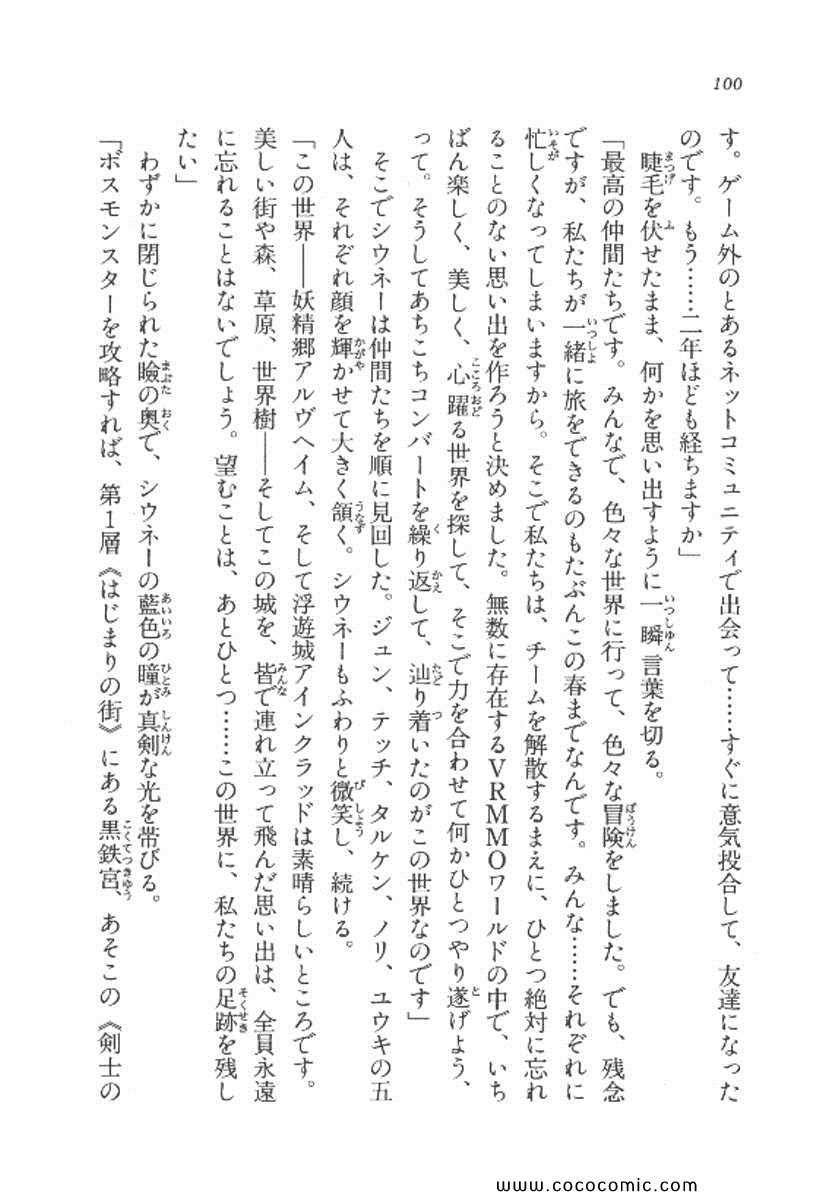 100
す。ゲーム外のとあるネットコミュニティで出会って……すぐに意気投合して、友達になった
のです。もう……二年ほども経ちますか」
睫毛を伏せたまま、何かを思い出すように一瞬言葉を切る。
「最高の仲間たちです。みんなで、色々な世界に行って、色々な冒険をしました。でも、残念
ですが、私たちが一緒に旅をできるのもたぶんこの春までなんです。みんな……それぞれに
忙しくなってしまいますから。そこで私たちは、チームを解散するまえに、ひとつ絶対に忘れ
ることのない思い出を作ろうと決めました。無数に存在するVRMMOワールドの中で、いち
ばん楽しく、美しく、心躍る世界を探して、そこで力を合わせて何かひとつやり遂げよう、
って。そうしてあちこちコンバートを繰り返して、辿り着いたのがこの世界なのです」
そこでシウネーは仲間たちを順に見回した。ジュン、テッチ、タルケン、ノリ、ユウキの五
人は、それぞれ顔を輝かせて大きく頷く。シウネーもふわりと微笑し、続ける。
「この世界――妖精郷アルヴヘイム、そして浮遊城アインクラッドは素晴らしいところです。
美しい街や森、草原、世界樹――そしてこの城を、皆で連れ立って飛んだ思い出は、全員永遠
に忘れることはないでしょう。望むことは、あとひとつ……この世界に、私たちの足跡を残し
たい」
わずかに閉じられた瞼の奥で、シウネーの藍色の瞳が真剣な光を帯びる。
「ボスモンスターを攻略すれば、第1層《はじまりの街》にある黒鉄宮、あそこの《剣士の
www.cococomic.com